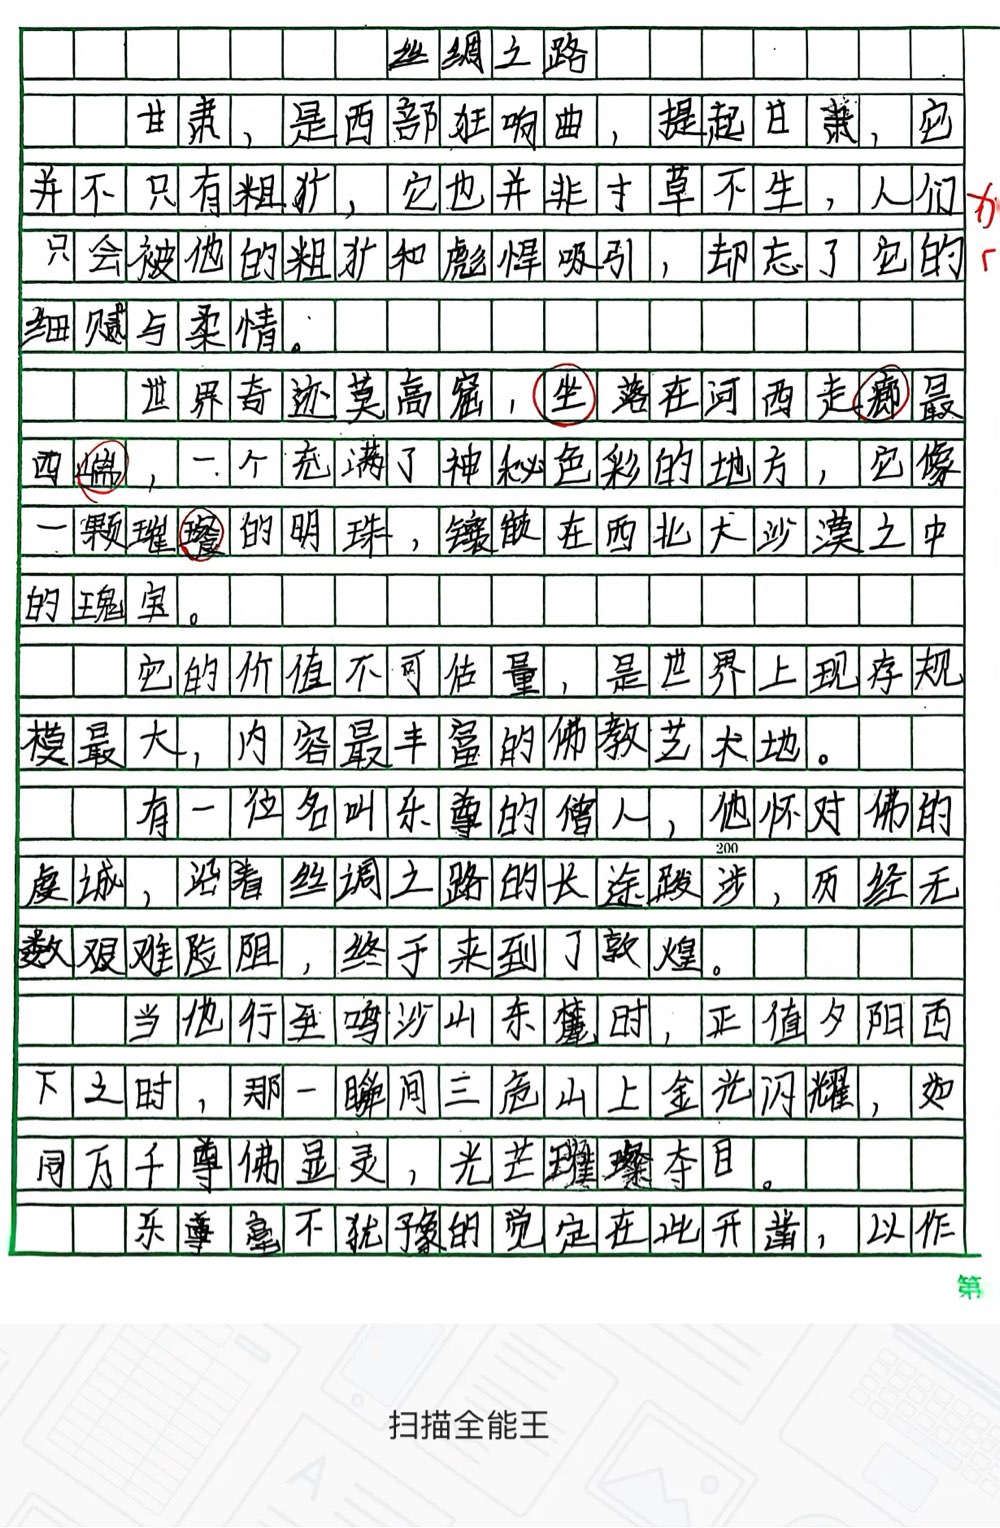 丝绸之路
甘肃，是西部狂响曲，提起甘肃，它
并不只有粗犷，它也并非寸草不生，人们
只会被他的粗犷和彪悍吸引，却忘了它的
细腻与柔情。
世界奇迹莫高窟，坐落在河西走廊最
西端，一个充满了神秘色彩的地方，它像
一颗璀璨的明珠，镶嵌在西北大沙漠之中
的瑰宝。
它的价值不可估量，是世界上现存规
模最大，内容最丰富的佛教艺术地。
有一位名叫乐尊的僧人，他怀对佛的
200
虔诚，沿着丝调之路的长途跋涉，历经无
数艰难险阻，终于来到了敦煌。
当他行至鸣沙山东麓时，正值夕阳西
下之时，那一瞬间三危山上金光闪耀，如
同万千尊佛显灵，光芒璀璨夺目。
乐尊毫不犹豫的觉定在此开凿，以作
第
扫描全能王